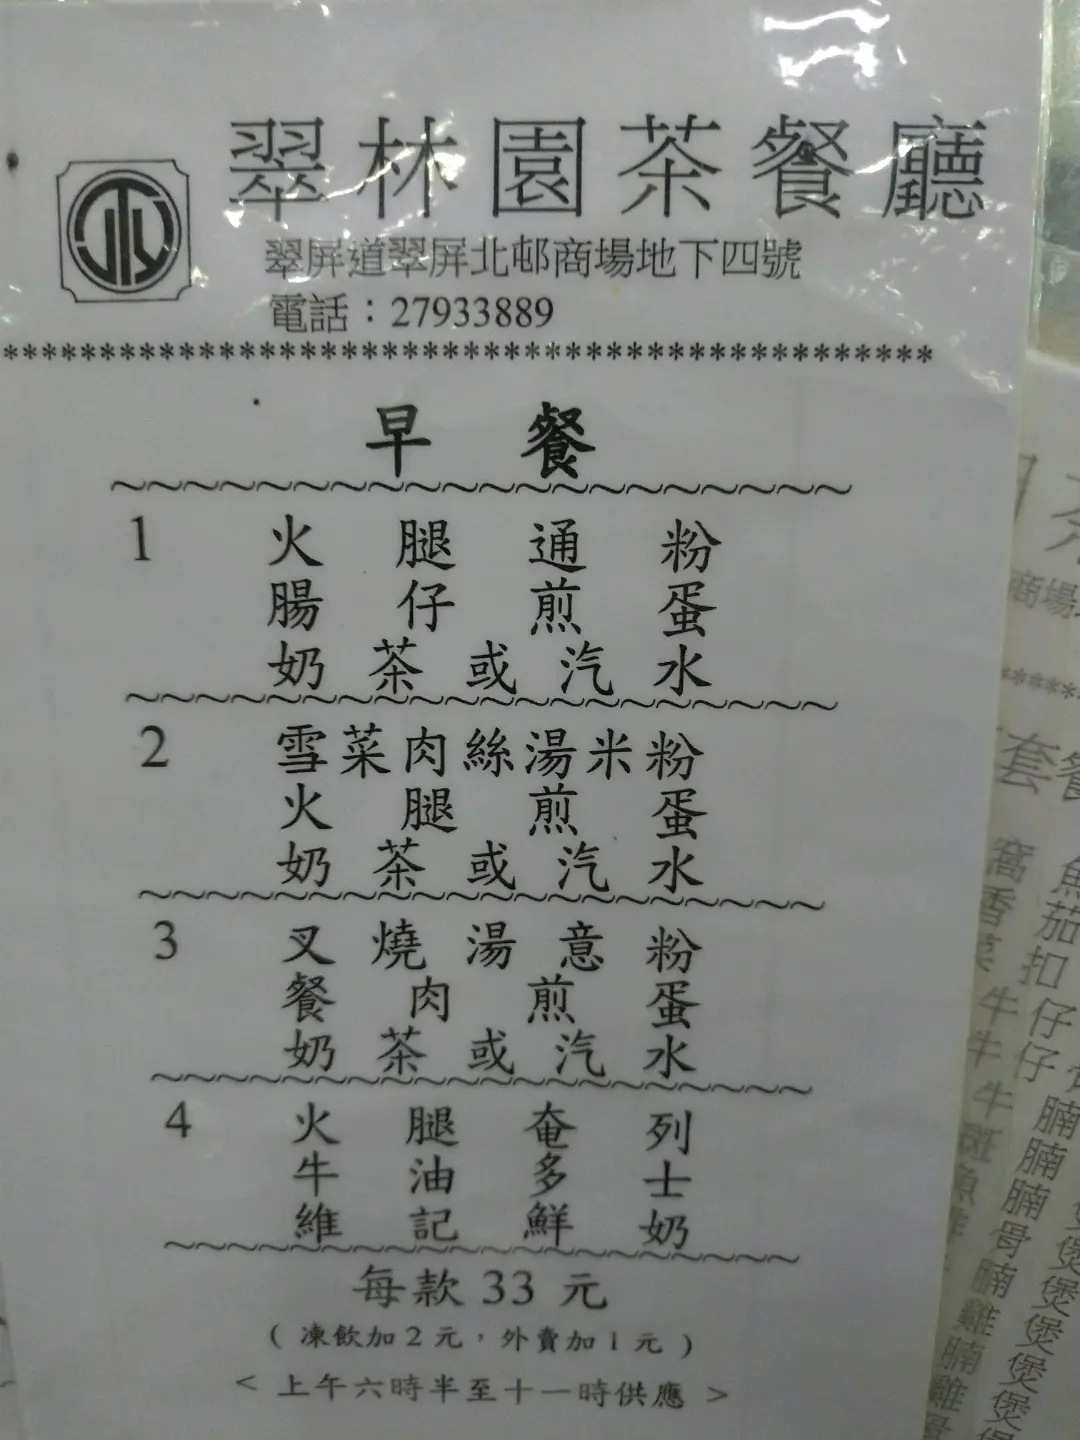 翠林園茶餐廳
翠屏道翠屏北邨商場地下四號
電話：27933889
************************************************
早餐
~~~~~~~~~~~~~~~~~~~~
1 火腿通粉
腸仔煎蛋
奶茶或汽水
~~~~~~~~~~~~~~~~~~~~
2 雪菜肉絲湯米粉
火腿煎蛋
奶茶或汽水
~~~~~~~~~~~~~~~~~~~~
3 叉燒湯意粉
餐肉煎蛋
奶茶或汽水
~~~~~~~~~~~~~~~~~~~~
4 火腿奄列
牛油多士
維記鮮奶
~~~~~~~~~~~~~~~~~~~~
每款33元
（凍飲加2元，外賣加1元）
<上午六時半至十一時供應>
商場
******
套餐